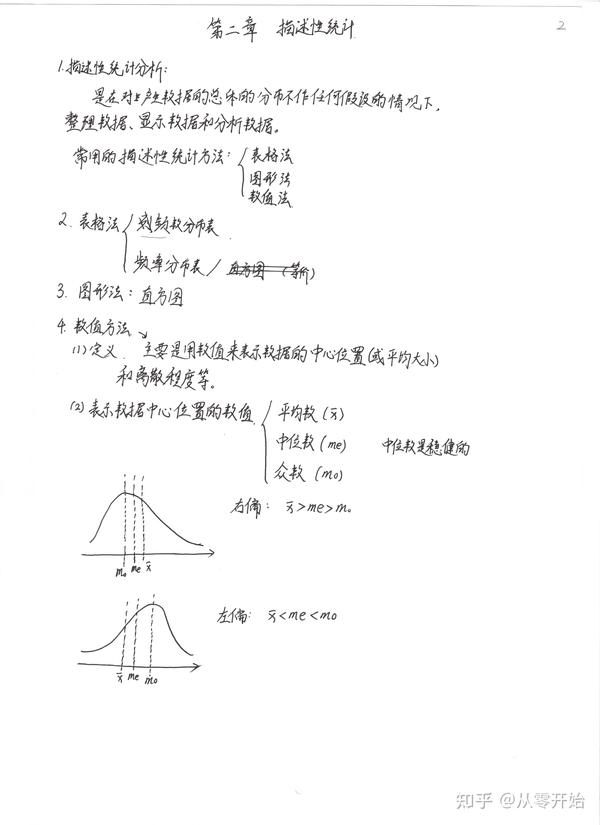 第二章 描述性统计
2
1.描述性统计分析:
是在对产生数据的总体的分布不作任何假设的情况下,
整理数据、显示数据和分析数据。
常用的描述性统计方法: 表格法
图形法
数值法
2. 表格法 频数分布表
频率分布表 / 直方图 (等价)
3. 图形法: 直方图
4. 数值方法
(1) 定义. 主要是用数值来表示数据的中心位置(或平均大小)
和离散程度等。
(2) 表示数据中心位置的数值 平均数 (x̄)
中位数 (me) 中位数是稳健的
众数 (mo)
右偏: x̄>me>mo
mo me x̄
左偏: x̄<me<mo
x̄ me mo
知乎 @从零开始